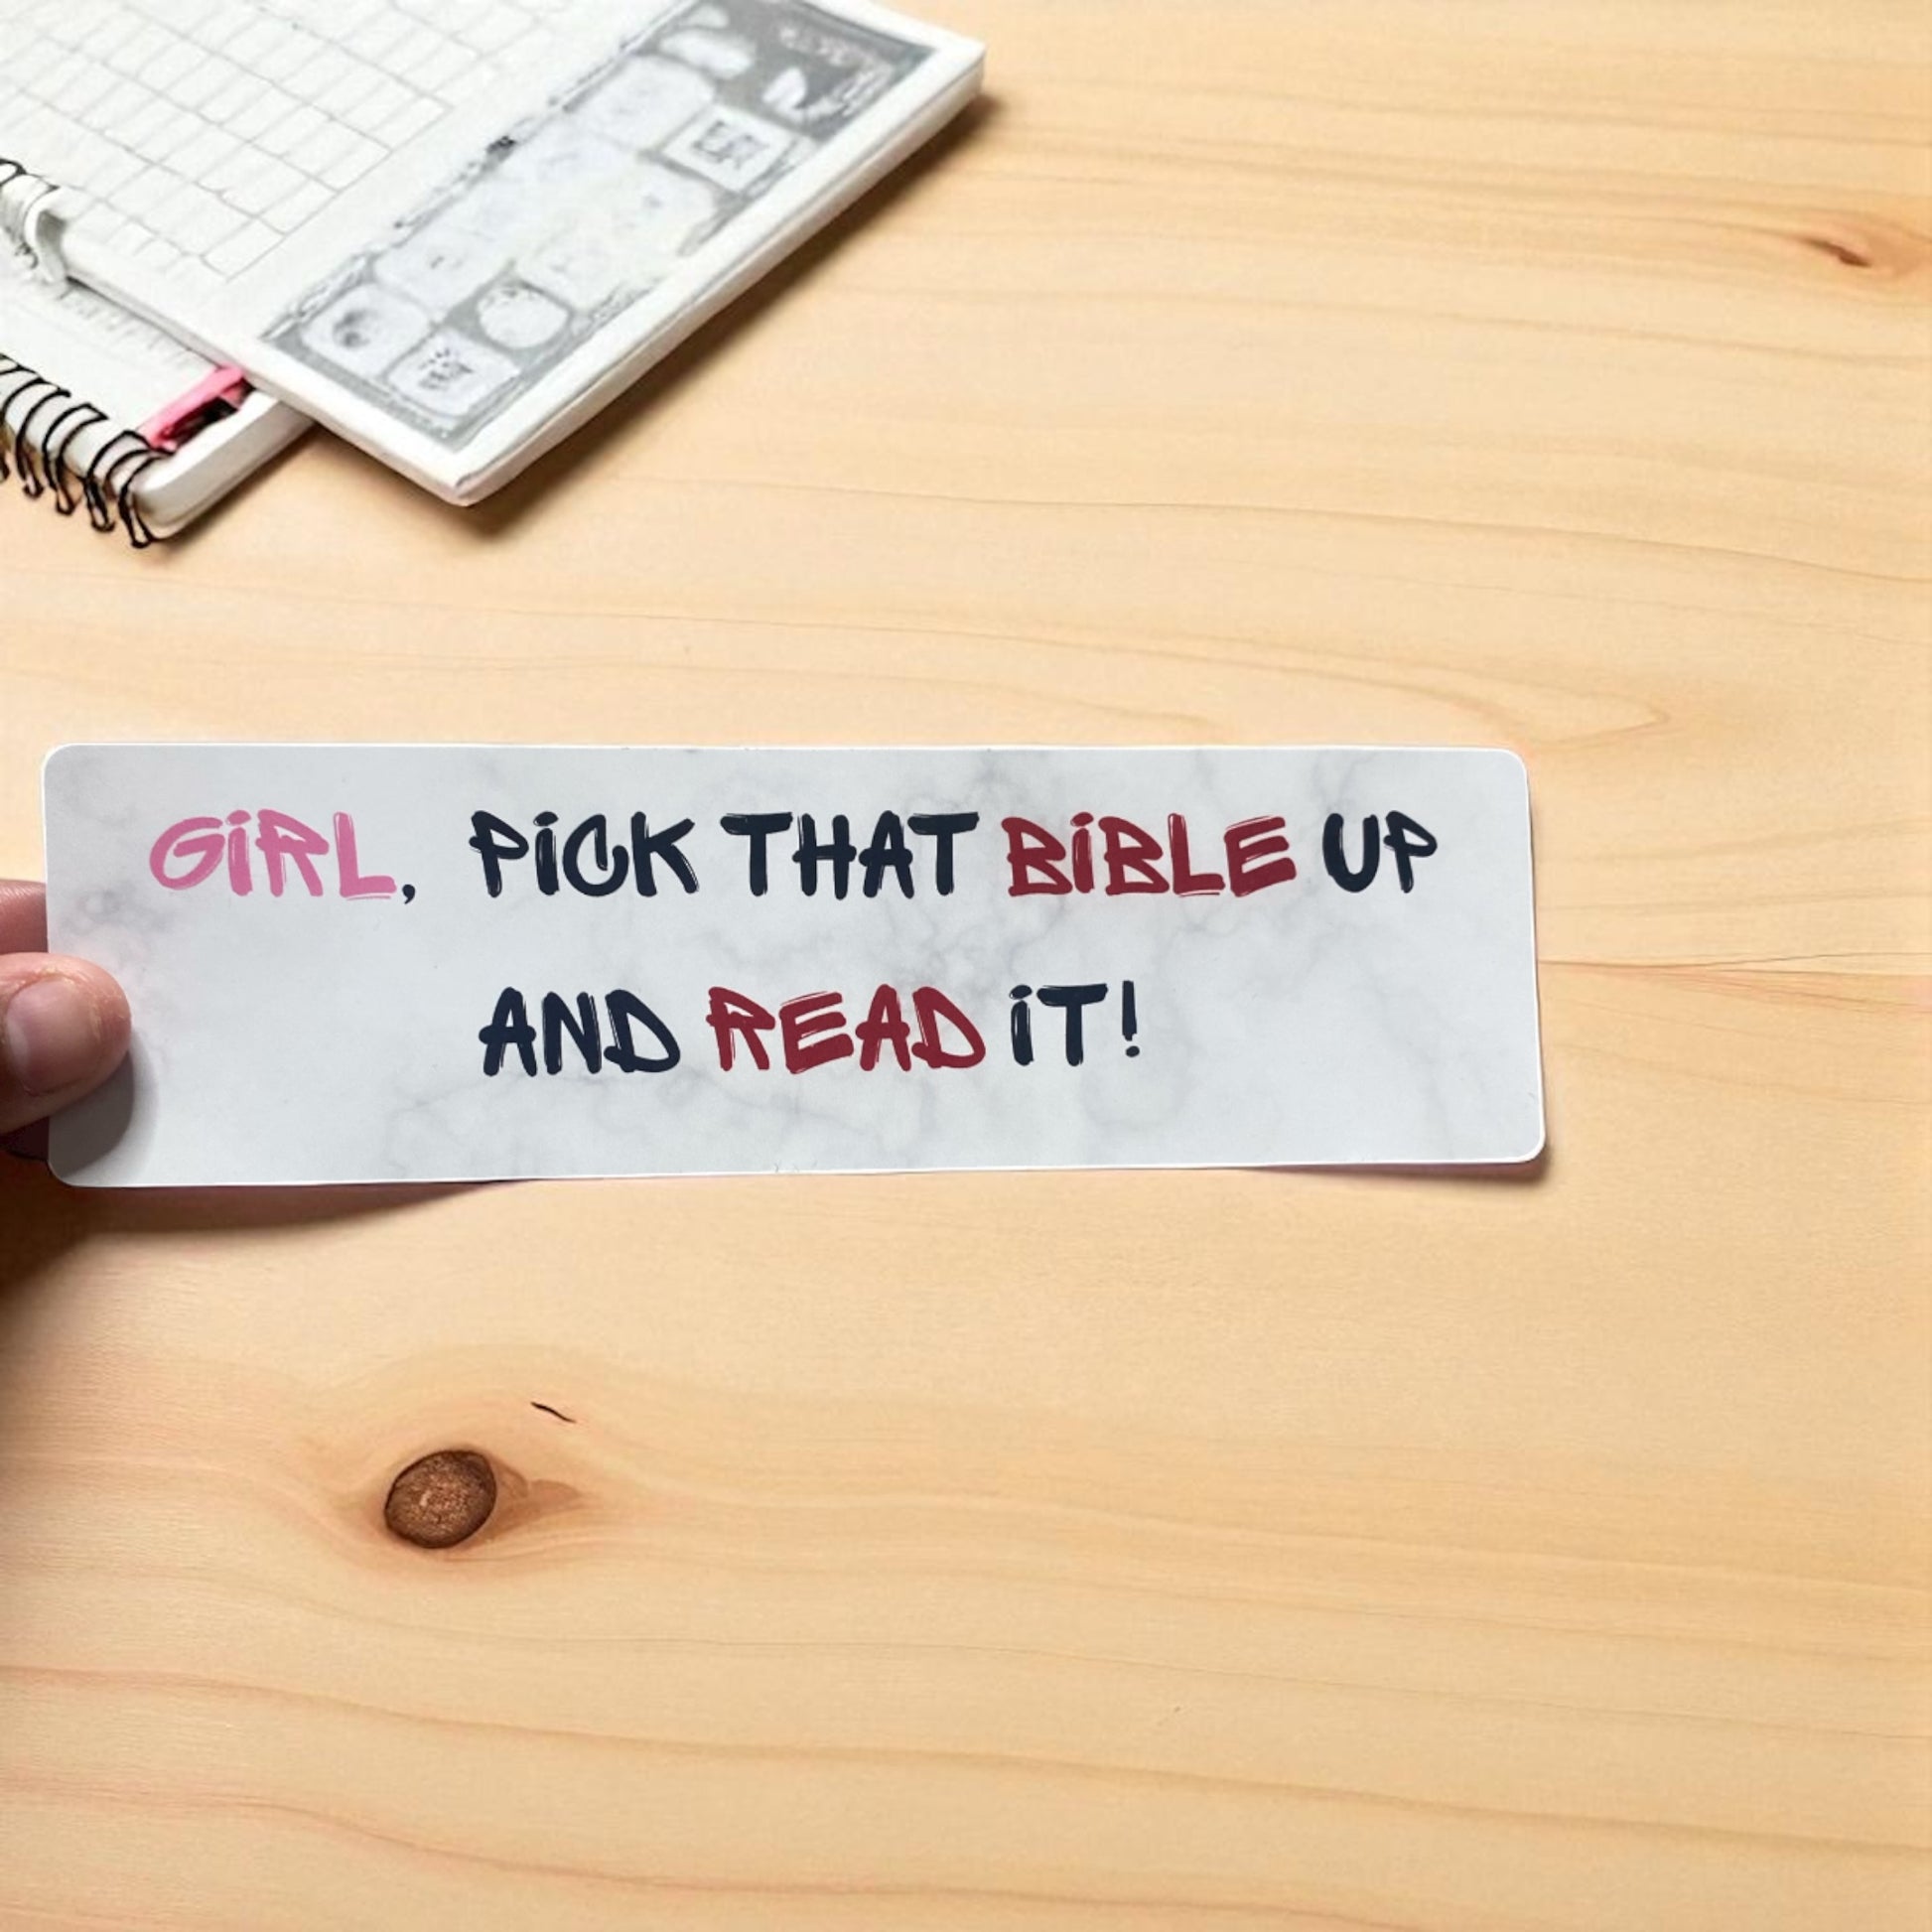 GiRL, PiCK THAT BiBLE UP
AND READ iT!